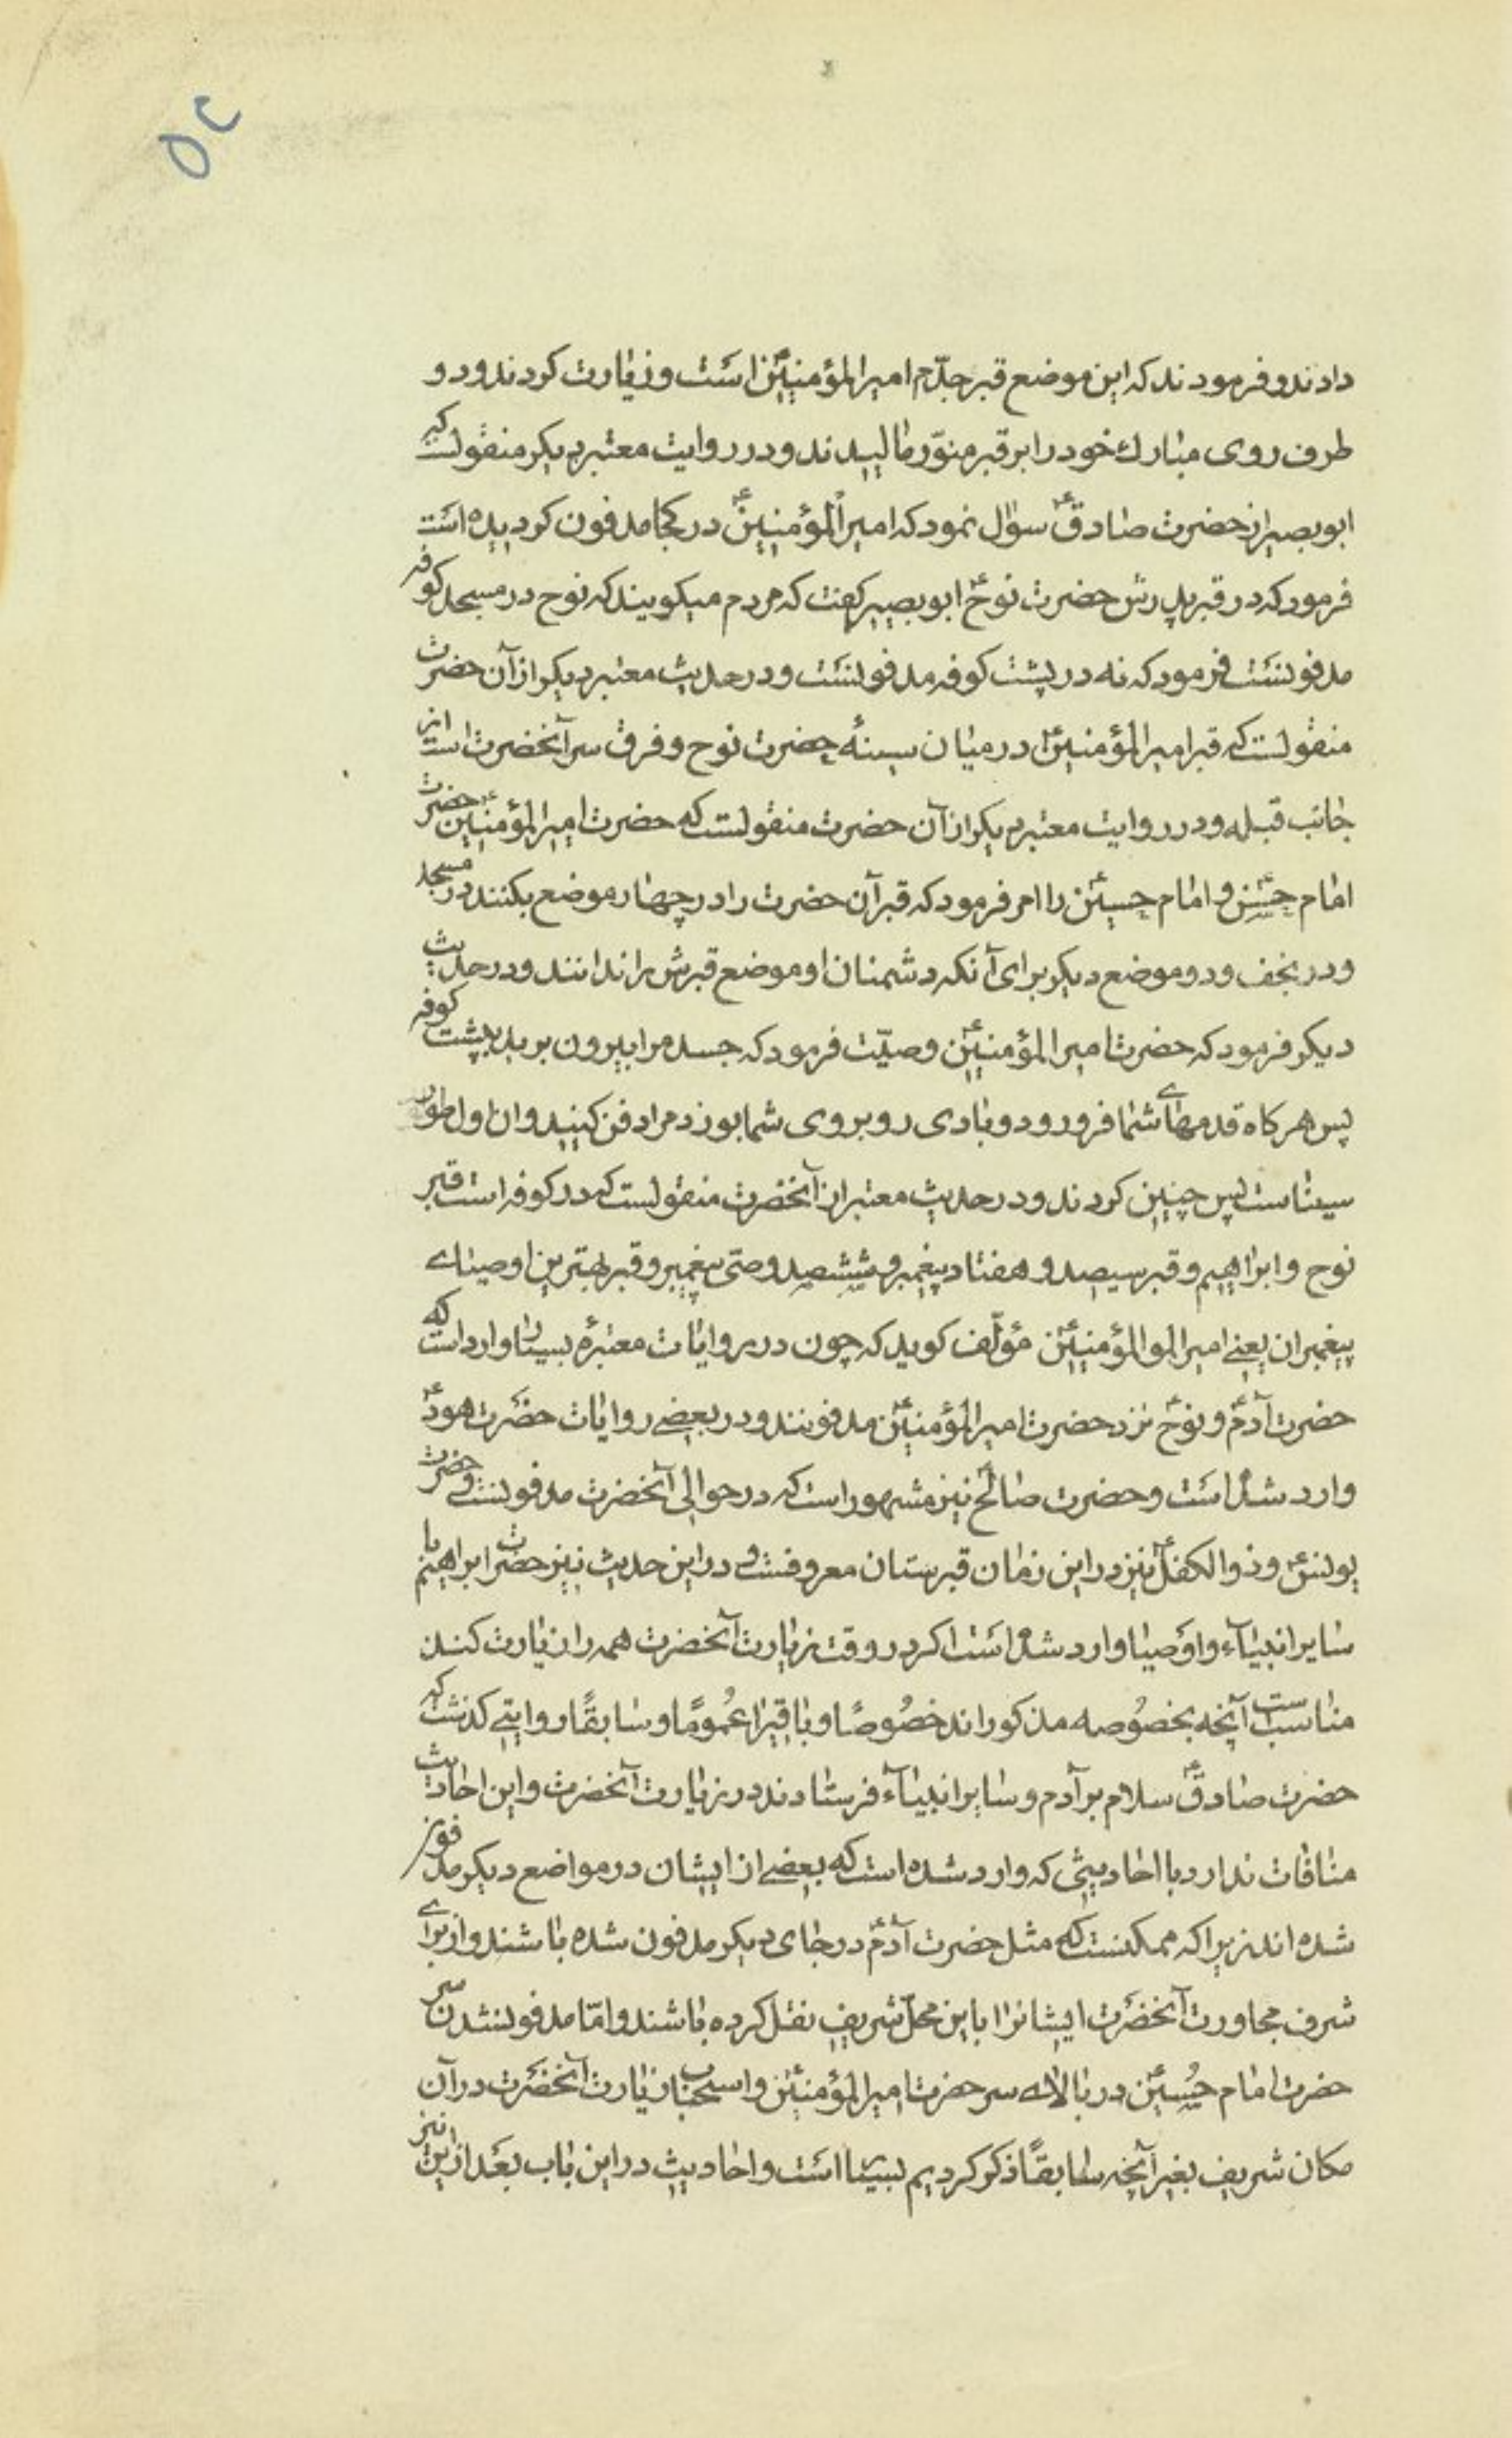 ۵۲
دادند و فرمودند که این موضع قبر جدّم امیرالمؤمنینؑ است و زیارت کردند و دو
طرف روی مبارك خود را بر قبر منوّر مالیدند و در روایت معتبر دیکر منقولست که
ابوبصیر از حضرت صادقؑ سؤال نمود که امیرالمؤمنینؑ در کجا مدفون کردیده است
فرمود که در قبر پدرش حضرت نوحؑ ابوبصیر کفت که مردم میکویند که نوح در مسجد کوفه
مدفونست فرمود که نه در پشت کوفه مدفونست و در حدیث معتبر دیکر از آن حضرت
منقولست که قبر امیرالمؤمنینؑ در میان سینهٔ حضرت نوح و فرق سر آنحضرت است از
جانب قبله و در روایت معتبر دیکر از آن حضرت منقولست که حضرت امیرالمؤمنینؑ حضرت
امام حسنؑ و امام حسینؑ را امر فرمود که قبر آن حضرت را در چهار موضع بکنند در مسجد
و در نجف و دو موضع دیکر برای آنکه دشمنان او موضع قبرش را ندانند و در حدیث
دیکر فرمود که حضرت امیرالمؤمنینؑ وصیّت فرمود که جسد مرا بیرون برید به پشت کوفه
پس هرکاه قدمهاے شما فرو رود و بادی روبروی شما بوزد مرا دفن کنید و ان اول طور
سیناست پس چنین کردند و در حدیث معتبر از آنحضرت منقولست که در کوفه است قبر
نوح و ابراهیم و قبر سیصد و هفتاد پیغمبر و ششصد وصیّ پیغمبر و قبر بهترین اوصیاے
پیغمبران یعنے امیرالمو المؤمنینؑ مؤلّف کوید که چون در روایات معتبرهٔ بسیار وارد است که
حضرت آدمؑ و نوحؑ نزد حضرت امیرالمؤمنینؑ مدفونند و در بعضے روایات حضرت هودؑ
وارد شده است و حضرت صالحؑ نیز مشهور است که در حوالی آنحضرت مدفونست و حضرت
یونسؑ و ذوالکفلؑ نیز در این زمان قبرستان معروفست و در این حدیث نیز حضرت ابراهیم با
سایر انبیآء و اوصیا وارد شده است اکر در وقت زیارت آنحضرت همه را زیارت کنند
مناسبست آنچه بخصُوصه مذکوراند خصُوصًا و باقیرا عُمومًا و سابقًا روایتے کذشت که
حضرت صادقؑ سلام بر آدم و سایر انبیآء فرستادند در زیارت آنحضرت و این احادیث
منافات ندارد با احادیثی که وارد شده است که بعضے از ایشان در مواضع دیکر مدفون
شده اند زیرا که ممکنست که مثل حضرت آدمؑ در جای دیکر مدفون شده باشند و از برای
شرف مجاورت آنحضرت ایشانرا باین محلّ شریف نقل کرده باشند و امّا مدفون شدن سر
حضرت امام حُسینؑ در بالاے سر حضرت امیرالمؤمنینؑ و استحباب زیارت آنحضرت در آن
مکان شریف بغیر آنچه سابقًا ذکر کردیم بسیار است و احادیث در این باب بعد از این نیز